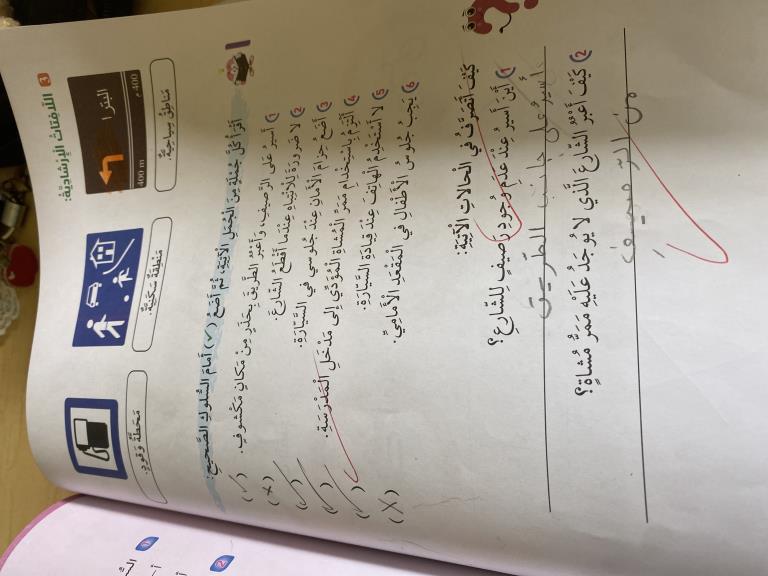 3 اللّافِتاتُ الْإِرْشادِيَّةُ:
البترا
400 م
400 m
مَناطِقُ سِياحِيَّةٌ.
مَنْطِقَةٌ سَكَنِيَّةٌ.
مَحَطَّةُ وَقودٍ.
أَقْرَأُ كُلَّ جُمْلَةٍ مِنَ الْجُمَلِ الْآتِيَةِ، ثُمَّ أَضَعُ (✓) أَمامَ السُّلوكِ الصَّحيحِ:
1 أَسيرُ عَلى الرَّصيفِ، وَأَعْبُرُ الطَّريقَ بِحَذَرٍ مِنْ مَكانٍ مَكْشوفٍ. (✓)
2 لا ضَرورَةَ لِلِانْتِباهِ عِنْدَما أَقْطَعُ الشّارِعَ. (✗)
3 أَضَعُ حِزامَ الْأَمانِ عِنْدَ جُلوسي في السَّيّارَةِ. (✓)
4 أَلْتَزِمُ بِاسْتِخْدامِ مَمَرِّ الْمُشاةِ الْمُؤَدّي إِلى مَدْخَلِ الْمَدْرَسَةِ. (✓)
5 لا أَسْتَخْدِمُ الْهاتِفَ عِنْدَ قِيادَةِ السَّيّارَةِ. (✓)
6 يَجِبُ جُلوسُ الْأَطْفالِ في الْمَقْعَدِ الْأَمامِيِّ. (✗)
كَيْفَ أَتَصَرَّفُ في الْحالاتِ الْآتِيَةِ:
1 أَيْنَ أَسيرُ عِنْدَ عَدَمِ وُجودِ رَصيفٍ لِلشّارِعِ؟
أسير على جانب الطريق
2 كَيْفَ أَعْبُرُ الشّارِعَ الَّذي لا يُوجَدُ عَلَيْهِ مَمَرُّ مُشاةٍ؟
من الرصيف
1
2